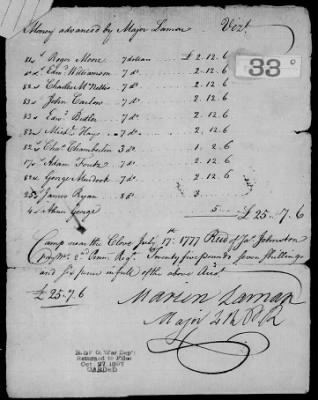 Money advanced by Major Lamar Vizt.
33
Roger Moore 7 dollars £ 2.12.6
Edwd. Williamson 7 do. 2.12.6
Charles McNellis 7 do. 2.12.6
John Carlow 7 do. 2.12.6
Edwd. Butler 7 do. 2.12.6
Michl. Hays 7 do. 2.12.6
Chas. Chamberlin 3 do. 1.2.6
Adam Foutz 7 do. 2.12.6
George Murdock 7 do. 2.12.6
James Ryan 8 do. 3
Adam George
5 £25.7.6
Camp near the Clove July 17th. 1777 Recd of Js. Johnston
Pay Mr. 2d Penn. Regt. Twenty five pounds seven shillings
and six pence in full of the above Acct
£25.7.6
Marien Lamar
Major 2 B P R
R. & P. O. War Dep't
Returned to Files
Oct 27 1897
CARDED